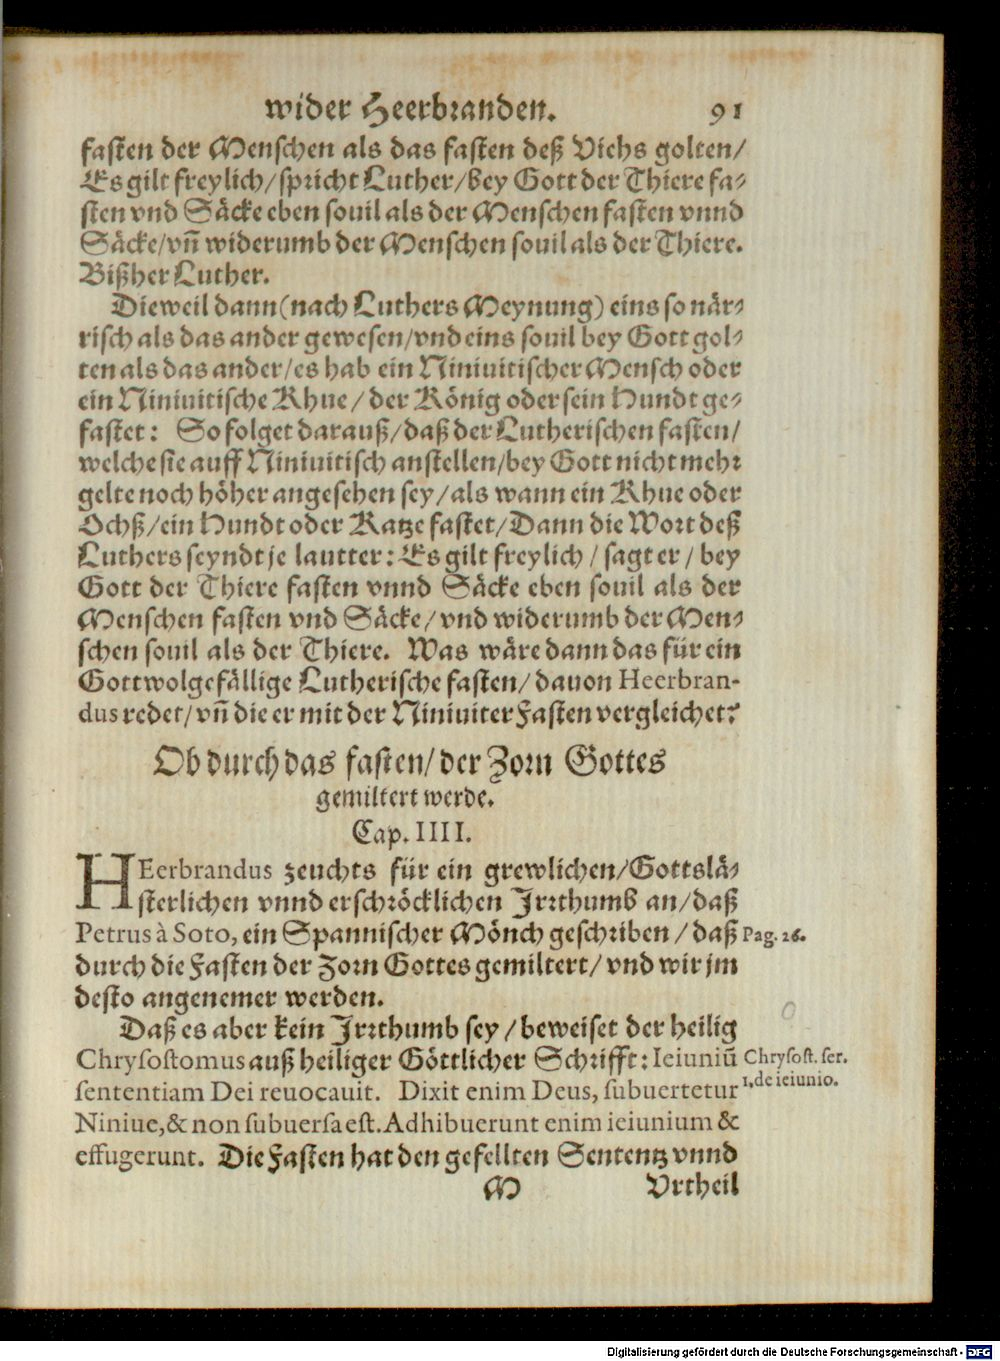 wider Heerbranden. 91
fasten der Menschen als das fasten deß Viehs golten/
Es gilt freylich/spricht Luther/bey Gott der Thiere fa-
sten vnd Säcke eben souil als der Menschen fasten vnnd
Säcke/vñ widerumb der Menschen souil als der Thiere.
Bißher Luther.
Dieweil dann (nach Luthers Meynung) eins so när-
risch als das ander gewesen/vnd eins souil bey Gott gol-
ten als das ander/es hab ein Niniuitischer Mensch oder
ein Niniuitische Khue/der König oder sein Hundt ge-
fastet: So folget darauß/daß der Lutherischen fasten/
welche sie auff Niniuitisch anstellen/bey Gott nicht mehr
gelte noch höher angesehen sey/als wann ein Khue oder
Ochß/ein Hundt oder Katze fastet/Dann die Wort deß
Luthers seyndt je lautter: Es gilt freylich/sagt er/bey
Gott der Thiere fasten vnnd Säcke eben souil als der
Menschen fasten vnd Säcke/vnd widerumb der Men-
schen souil als der Thiere. Was wäre dann das für ein
Gottwolgefällige Lutherische fasten/dauon Heerbran-
dus redet/vñ die er mit der Niniuiter Fasten vergleichet?
Ob durch das fasten/der Zorn Gottes
gemiltert werde.
Cap. IIII.
HEerbrandus zeuchts für ein grewlichen/Gottslä-
sterlichen vnnd erschröcklichen Irrthumb an/daß
Petrus à Soto, ein Spannischer Mönch geschriben/daß
Pag. 26.
durch die Fasten der Zorn Gottes gemiltert/vnd wir jm
desto angenemer werden.
Daß es aber kein Irrthumb sey/beweiset der heilig
Chrysostomus auß heiliger Göttlicher Schrifft: Ieiuniũ
Chrysost. ser.
sententiam Dei reuocauit. Dixit enim Deus, subuertetur
1. de ieiunio.
Niniue, & non subuersa est. Adhibuerunt enim ieiunium &
effugerunt. Die Fasten hat den gefellten Sententz vnnd
M Vrtheil
Digitalisierung gefördert durch die Deutsche Forschungsgemeinschaft - DFG